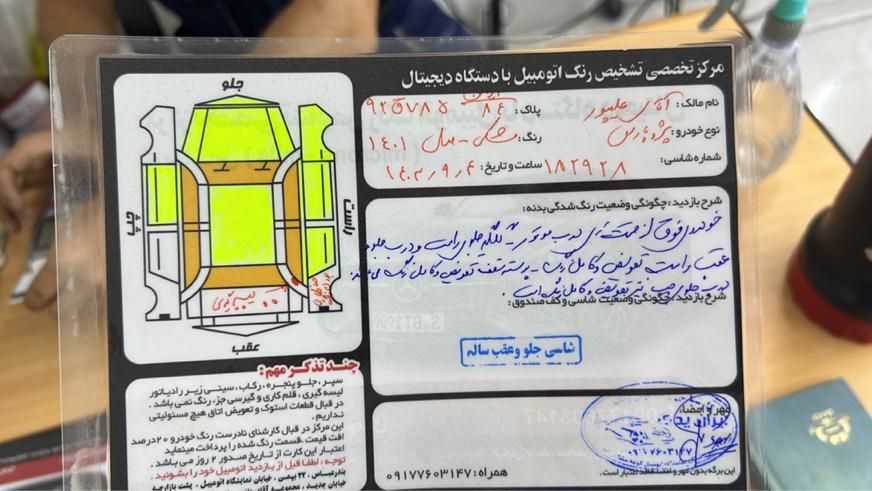 مرکز تخصصی تشخیص رنگ اتومبیل با دستگاه دیجیتال
نام مالک: آقای علیپور پلاک: ۹۲ق۷۸۵ ایران ۸۴
نوع خودرو: پژو پارس رنگ: مشکی - مدل ۱۴۰۱
شماره شاسی: ۱۸۲۹۲۸ ساعت و تاریخ: ۱۴۰۲,۹,۴
شرح بازدید: چگونگی وضعیت رنگ شدگی بدنه:
خودروی فوق از قسمت های درب موتور - گلگیر جلوی راست و درب جلو و
عقب راست تعویض و کامل رنگ - پوسته سقف تعویض و کامل رنگ می باشد.
درب جلوی چپ نیز تعویض و کامل رنگ است.
شرح بازدید: چگونگی وضعیت شاسی و کف صندوق:
شاسی جلو و عقب سالم
مهر و امضاء
۰۹۱۷۷۶۰۳۱۴۷
همراه: ۰۹۱۷۷۶۰۳۱۴۷
این برگه بدون مهر و امضاء فاقد اعتبار است.
جلو
چپ
راست
عقب
چند تذکر مهم:
سپر، جلو پنجره، رکاب، سینی زیر رادیاتور
لیسه گیری، قلم کاری و گیرسی جزء رنگ نمی باشد.
در قبال قطعات استوک و تعویض اتاق هیچ مسئولیتی
نداریم.
این مرکز در قبال کارشناسی نادرست رنگ خودرو ۲۰درصد
افت قیمت، قسمت رنگ شده را پرداخت مینماید
اعتبار این کارت از تاریخ صدور ۲ روز می باشد.
توجه: لطفا قبل از بازدید اتومبیل خود را بشوئید.
بندرعباس، ۲۲ بهمن، خیابان نمایشگاه اتومبیل، پشت بازارچه